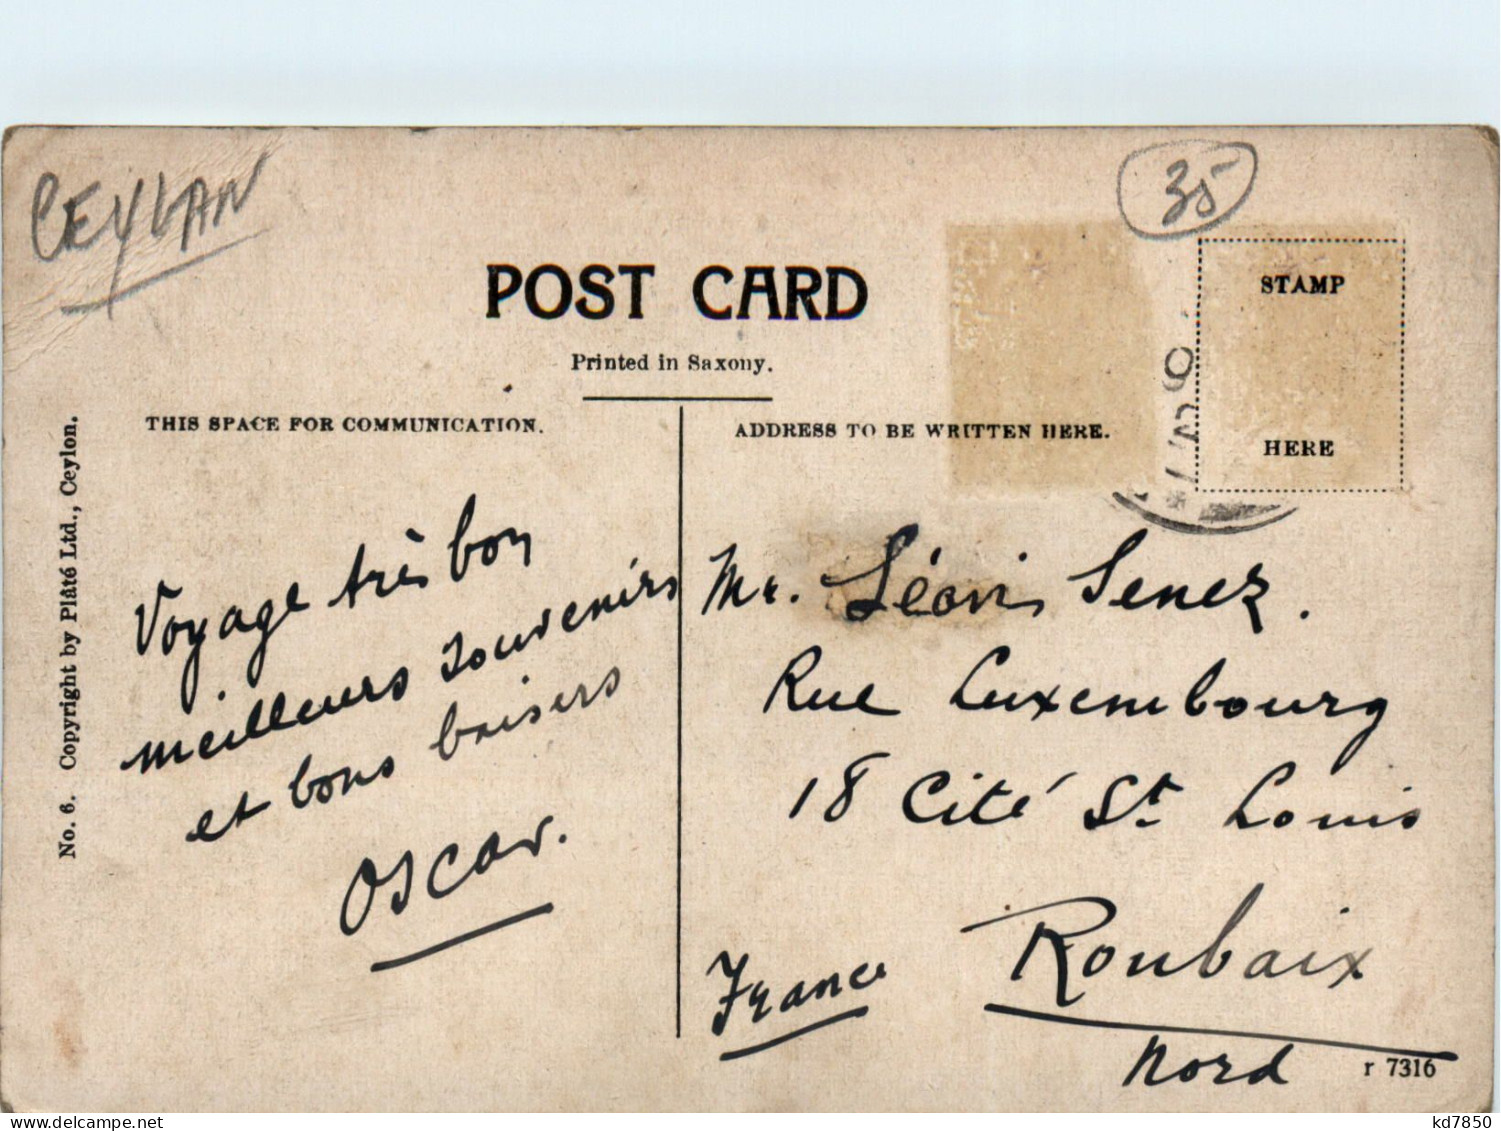 CEYLAN
35
POST CARD
Printed in Saxony.
STAMP
HERE
THIS SPACE FOR COMMUNICATION.
ADDRESS TO BE WRITTEN HERE.
No. 6. Copyright by Plâté Ltd., Ceylon.
Voyage très bon
meilleurs souvenirs
et bons baisers
Oscar.
Mr. Senez.
Rue Luxembourg
18 Cité St. Louis
Roubaix
France
Nord
r 7316
kd7850